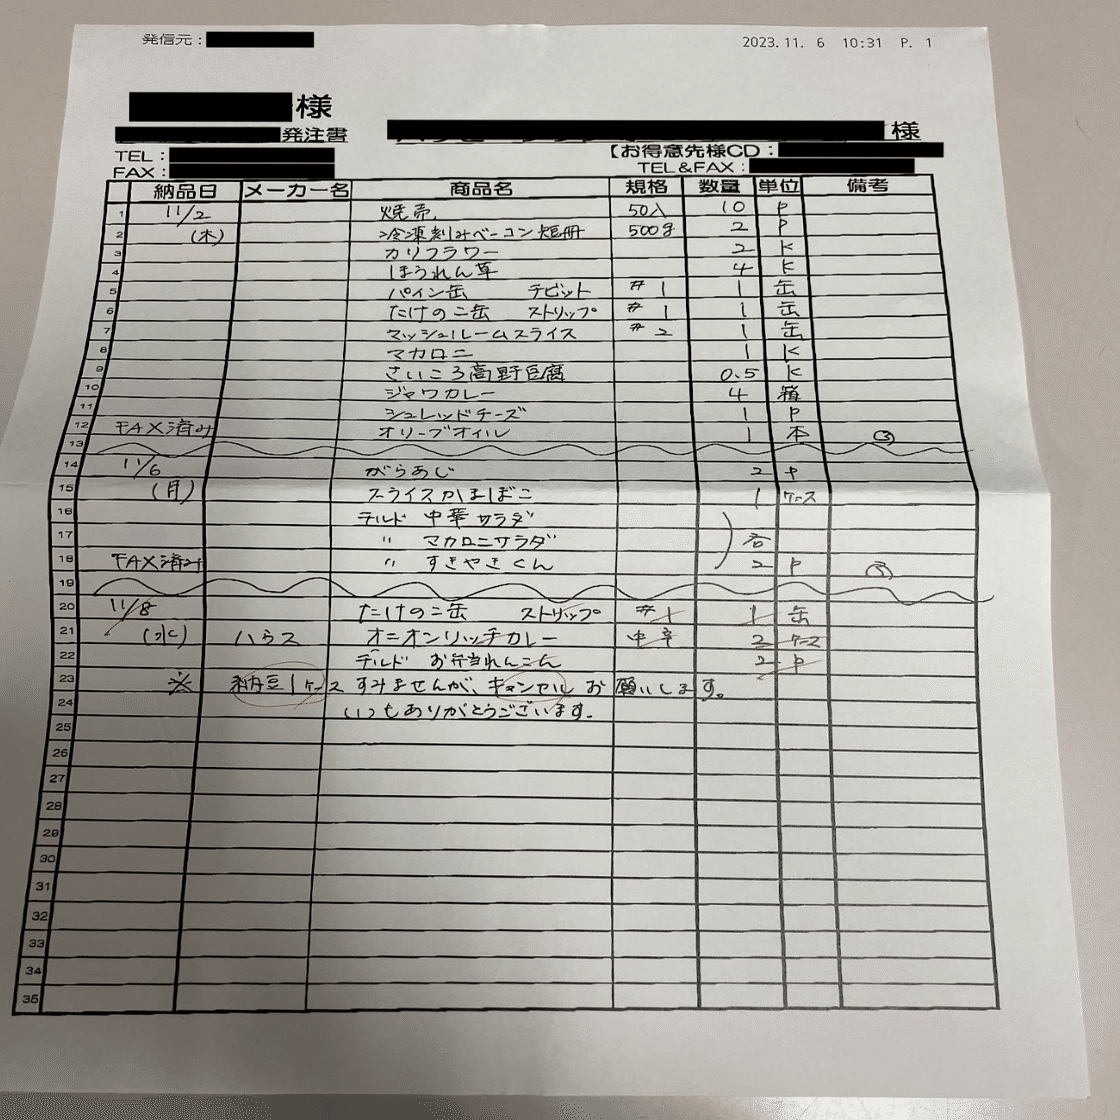 発信元：
2023.11. 6 10:31 P. 1
様
発注書
様
TEL：
【お得意先様CD：
FAX：
TEL&FAX：
納品日 メーカー名 商品名 規格 数量 単位 備考
1 11/2 焼売 50入 10 P
2 (木) 冷凍刻みベーコン短冊 500g 2 P
3 カリフラワー 2 K
4 ほうれん草 4 K
5 パイン缶 チビット #1 1 缶
6 たけのこ缶 ストリップ #1 1 缶
7 マッシュルームスライス #2 1 缶
8 マカロニ 1 K
9 さいころ高野豆腐 0.5 K
10 ジャワカレー 4 箱
11 シュレッドチーズ 1 P
12 FAX済み オリーブオイル 1 本 ③
13
14 11/6 がらあじ 2 P
15 (月) スライスかまぼこ 1 ケース
16 チルド 中華サラダ
17 〃 マカロニサラダ 各
18 FAX済み 〃 すきやきくん 2 P
19
20 11/8 たけのこ缶 ストリップ #1 1 缶
21 (水) ハウス オニオンリッチカレー 中辛 2 ケース
22 チルド お弁当れんこん 2 P
23 ※ 納豆1ケース すみませんが、キャンセルお願いします。
24 いつもありがとうございます。
25
26
27
28
29
30
31
32
33
34
35